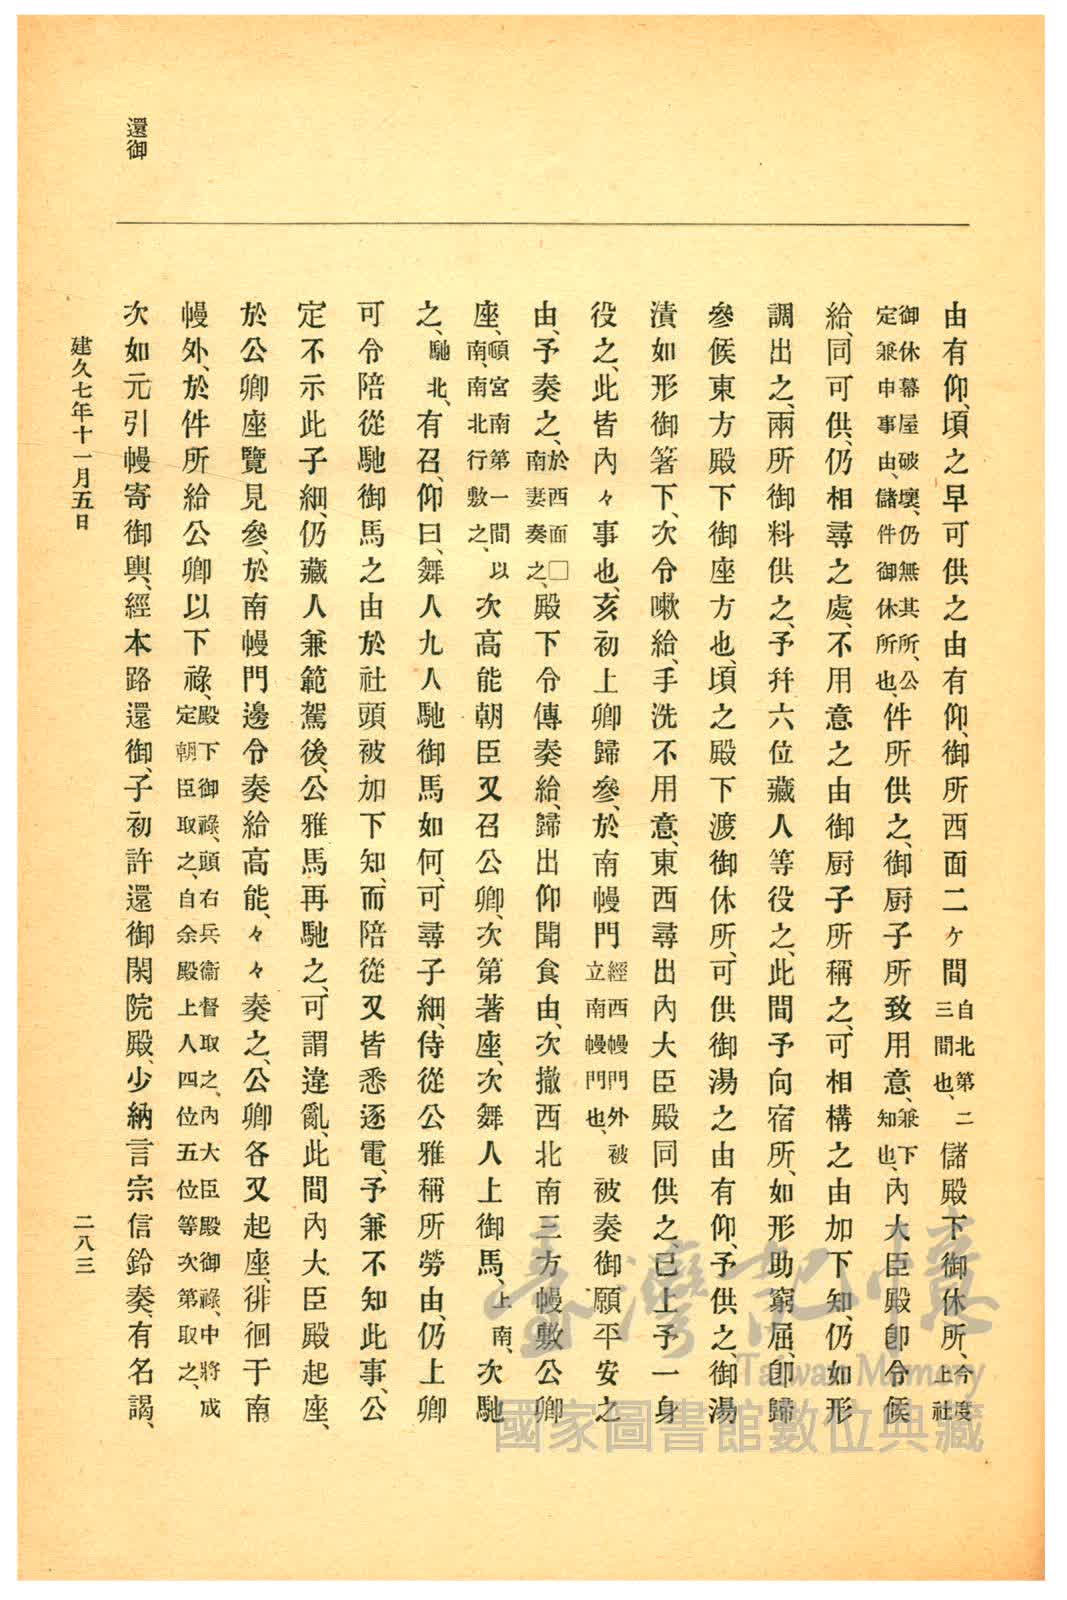 還御
由有仰、頃之早可供之由有仰、御所西面二ヶ間自北第二三間也、儲殿下御休所、今度上社
御休幕屋破壞、仍無其所、公定兼申事由、儲件御休所也、件所供之、御厨子所致用意、兼下知也、內大臣殿卽令候
給、同可供、仍相尋之處、不用意之由御厨子所稱之、可相構之由加下知、仍如形
調出之、兩所御料供之、予幷六位藏人等役之、此間予向宿所、如形助窮屈、卽歸
參候東方殿下御座方也、頃之殿下渡御休所、可供御湯之由有仰、予供之、御湯
漬如形御箸下、次令嗽給、手洗不用意、東西尋出內大臣殿同供之已上予一身
役之、此皆內々事也、亥初上卿歸參、於南幔門經西幔門外被立南幔門也、被奏御願平安之
由、予奏之、於西面□南妻奏之、殿下令傳奏給、歸出仰聞食由、次撤西北南三方幔敷公卿
座、頓宮南第一間以南、南北行敷之、次高能朝臣又召公卿、次第著座、次舞人上御馬、上南、次馳
之、馳北、有召、仰曰、舞人九人馳御馬如何、可尋子細、侍從公雅稱所勞由、仍上卿
可令陪從馳御馬之由於社頭被加下知、而陪從又皆悉逐電、予兼不知此事、公
定不示此子細、仍藏人兼範駕後、公雅馬再馳之、可謂違亂、此間內大臣殿起座、
於公卿座覽見參、於南幔門邊令奏給高能、々々奏之、公卿各又起座、徘徊于南
幔外、於件所給公卿以下祿、殿下御祿、頭右兵衞督取之、內大臣殿御祿、中將成定朝臣取之、自余殿上人四位五位等次第取之、
次如元引幔寄御輿、經本路還御、子初許還御閑院殿、少納言宗信鈴奏、有名謁、
建久七年十一月五日
二八三
臺灣記憶
Taiwan Memory
國家圖書館數位典藏